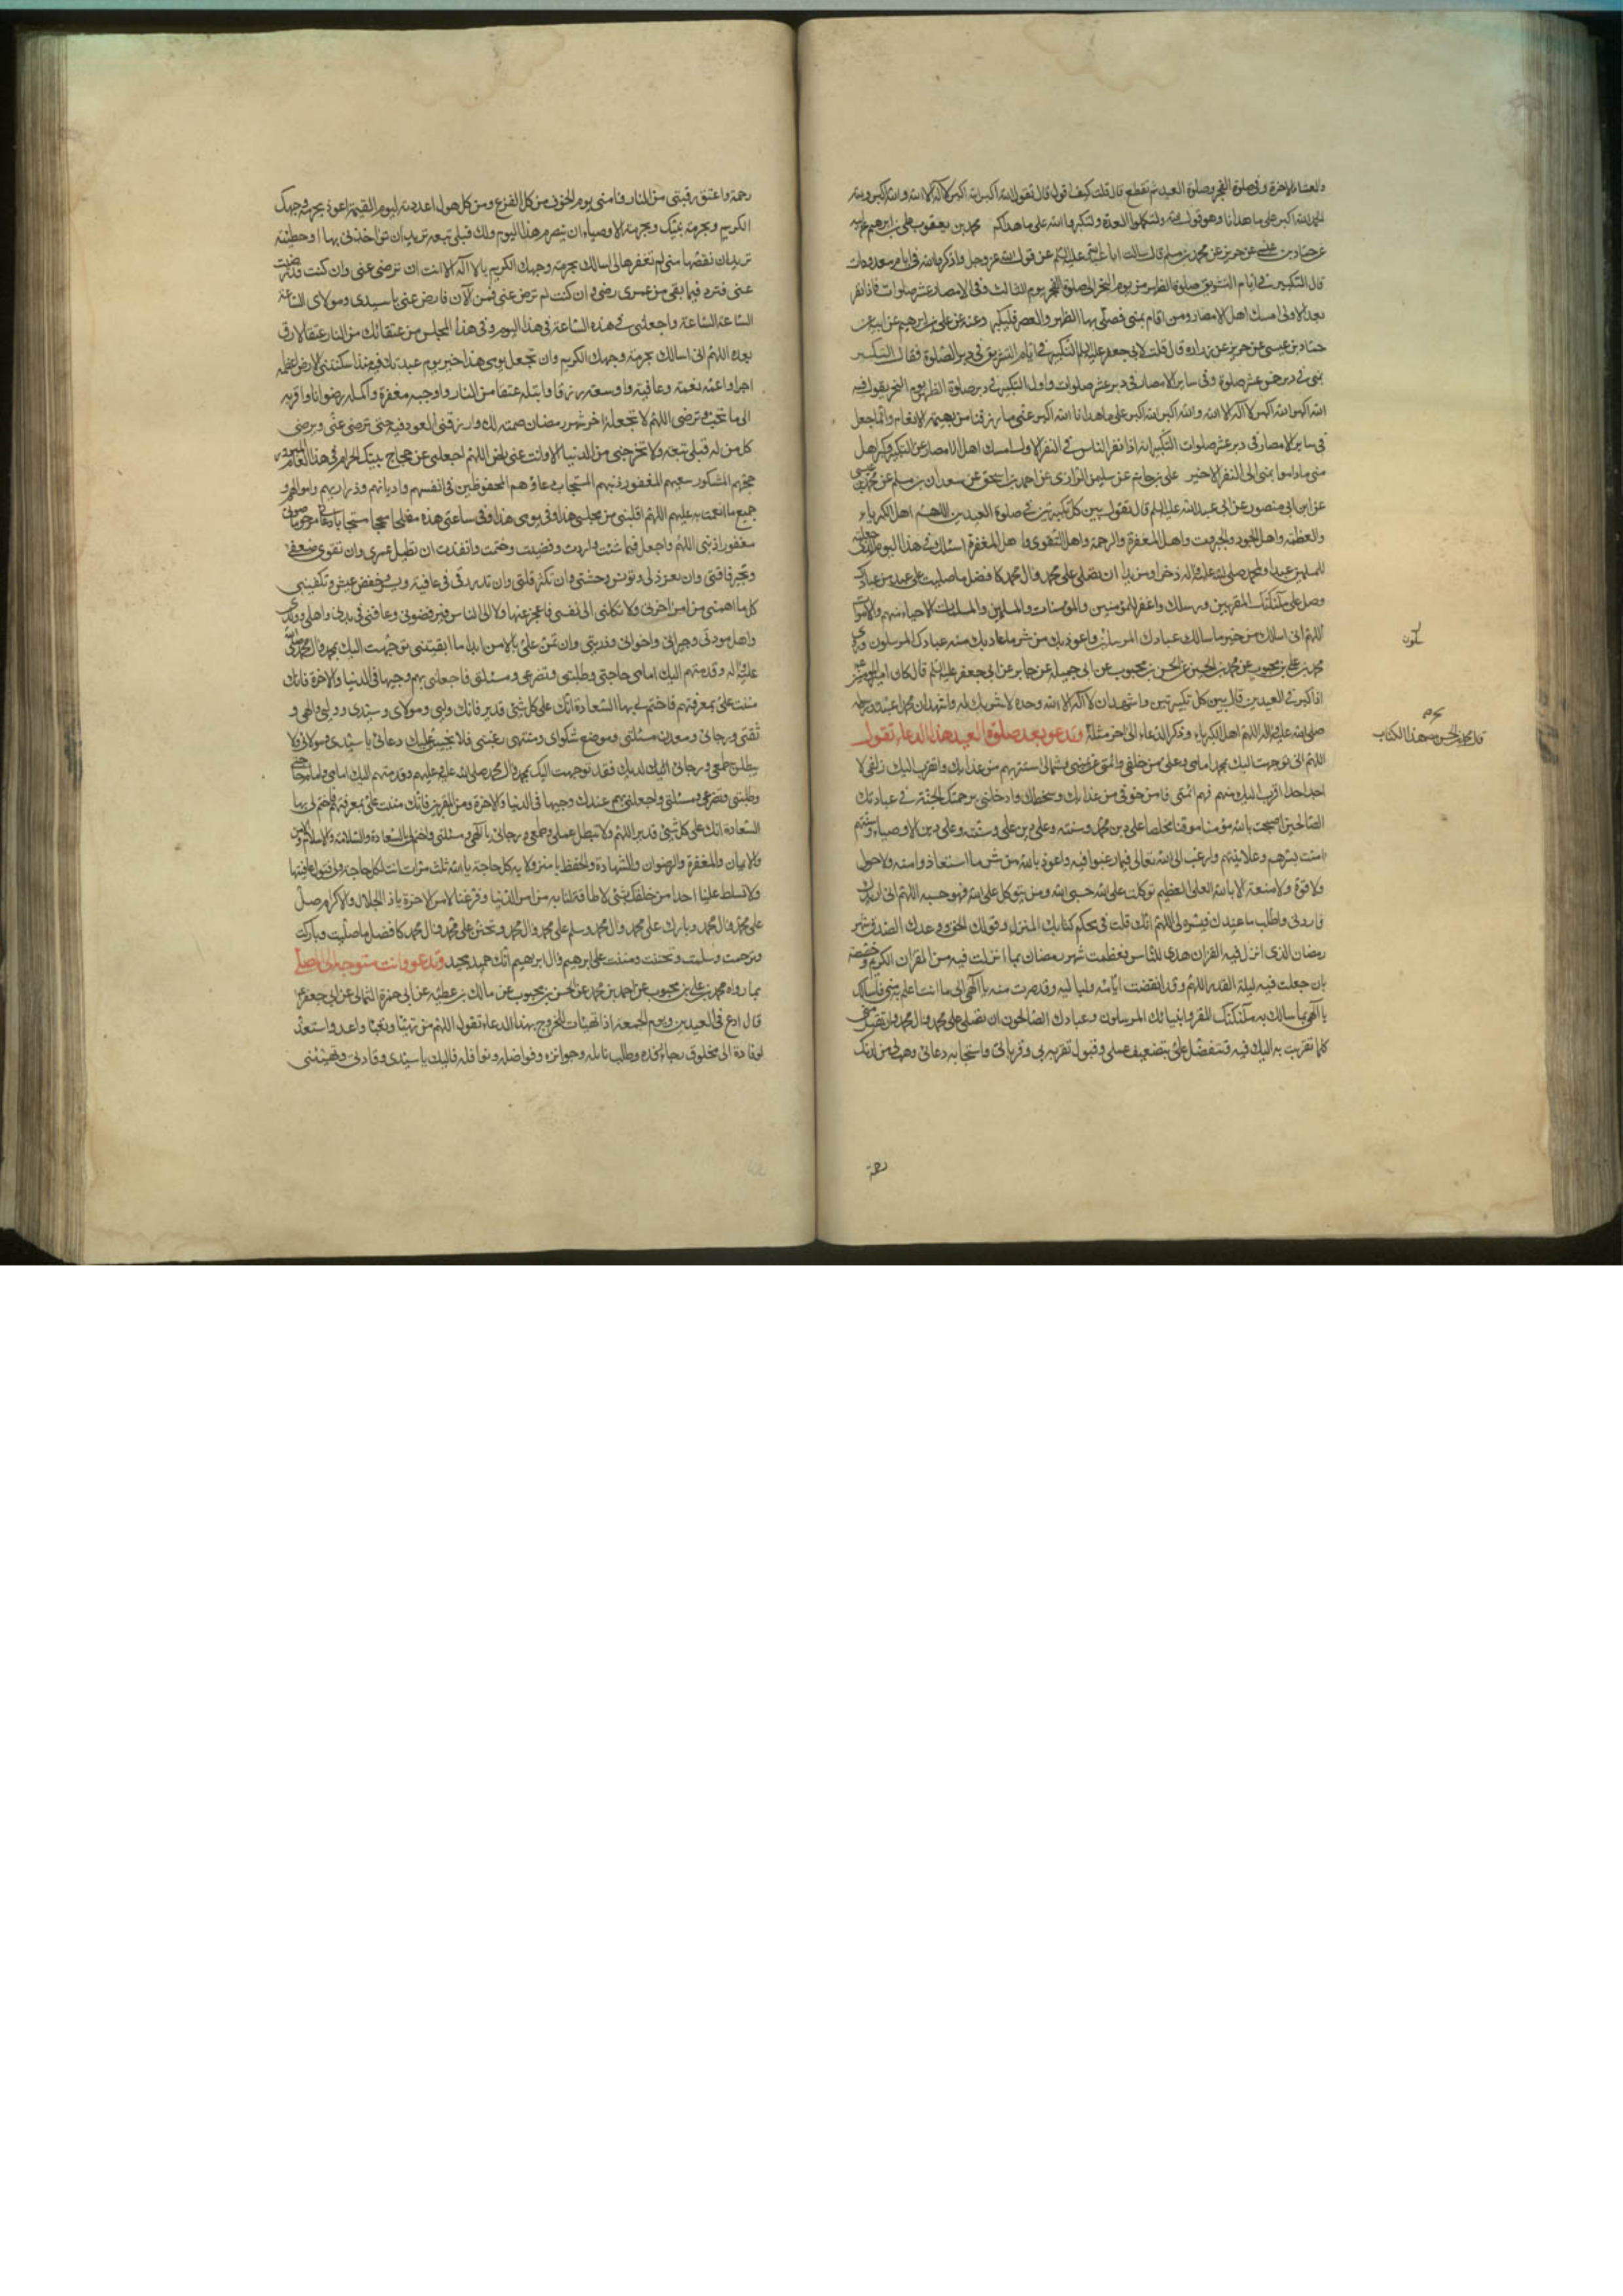 والعشاء الاخرة وفى صلوة الفجر وصلوة العيد ثم تقطع قال قلت كيف اقول قال تقول الله اكبر الله اكبر لا اله الا الله والله اكبر ولله
الحمد الله اكبر على ما هدانا وهو قول الله ولتكملوا العدة ولتكبروا الله على ما هداكم محمد بن يعقوب عن على بن ابرهيم عن ابيه
عن حماد بن عيسى عن حريز عن محمد بن مسلم قال سالت ابا عبد الله عليه السلام عن قول الله عز وجل واذكروا الله فى ايام معدودات
قال التكبير فى ايام التشريق صلوة الظهر من يوم النحر الى صلوة الفجر يوم الثالث وفى الامصار عشر صلوات فاذا نفر
بعد الاولى امسك اهل الامصار ومن اقام بمنى فصلى بها الظهر والعصر فليكبر وعنه عن على بن ابرهيم عن ابيه عن
حماد بن عيسى عن حريز عن زرارة قال قلت لابى جعفر عليه السلم التكبير فى ايام التشريق فى دبر الصلوة فقال التكبير
بمنى فى دبر خمس عشر صلوة وفى ساير الامصار فى دبر عشر صلوات واول التكبير فى دبر صلوة الظهر يوم النحر يقول فيه
الله اكبر الله اكبر لا اله الا الله والله اكبر الله اكبر على ما هدانا الله اكبر على ما رزقنا من بهيمة الانعام وانما جعل
فى ساير الامصار فى دبر عشر صلوات التكبير انه اذا نفر الناس فى النفر الاول امسك اهل الامصار عن التكبير وكبر اهل
منى ماداموا بمنى الى النفر الاخير على بن حاتم عن سليمن الرازى عن احمد بن اسحق عن سعدان بن مسلم عن محمد بن عيسى
عن ابى منصور عن ابى عبد الله عليه السلم قال تقول بين كل تكبيرتين فى صلوة العيدين اللهم اهل الكبرياء
والعظمة واهل الجود والجبروت واهل العفو والرحمة واهل التقوى واهل المغفرة اسئلك فى هذا اليوم الذى جعلته
للمسلمين عيدا ولمحمد صلى الله عليه واله ذخرا ومزيدا ان تصلى على محمد وال محمد كافضل ما صليت على عبد من عبادك
وصل على ملئكتك المقربين ورسلك واغفر للمؤمنين والمؤمنات والمسلمين والمسلمات الاحياء منهم والاموات
اللهم انى اسالك من خير ما سالك عبادك المرسلون واعوذ بك من شر ما عاذ بك منه عبادك المرسلون وروى
محمد بن على بن محبوب عن محمد بن الحسين عن الحسن بن محبوب عن ابى جميلة عن جابر عن ابى جعفر عليه السلم قال كان امير المؤمنين
اذا كبر فى العيدين قال بين كل تكبيرتين واشهد ان لا اله الا الله وحده لا شريك له واشهد ان محمدا عبده ورسوله
صلى الله عليه واله اللهم اهل الكبرياء وذكر الدعاء الى اخره مثله وتدعو بعد صلوة العيد هذا الدعاء تقول
اللهم انى توجهت اليك بمحمد امامى وعلى من خلفى وائمتى عن يمينى وشمالى استتر بهم من عذابك واتقرب اليك زلفى لا
احد احدا اقرب اليك منهم فهم ائمتى فامن خوفى من عذابك وسخطك وادخلنى برحمتك الجنة فى عبادك
الصالحين اصبحت بالله مؤمنا موقنا مخلصا على دين محمد وسنته وعلى دين على وسنته وعلى دين الاوصياء وسنتهم
امنت بسرهم وعلانيتهم وارغب الى الله تعالى فيما رغبوا فيه واعوذ بالله من شر ما استعاذوا منه ولا حول
ولا قوة ولا منعة الا بالله العلى العظيم توكلت على الله حسبى الله ومن يتوكل على الله فهو حسبه اللهم انى اريدك
فاردنى واطلب ما عندك فيسره لى اللهم انك قلت فى محكم كتابك المنزل وقولك الحق ووعدك الصدق شهر
رمضان الذى انزل فيه القران هدى للناس فعظمت شهر رمضان بما انزلت فيه من القران الكريم وخصصته
بان جعلت فيه ليلة القدر اللهم وقد انقضت ايامه ولياليه وقد صرت منه يا الهى الى ما انت اعلم به منى فاسالك
يا الهى بما سالك به ملئكتك المقربون وانبيائك المرسلون وعبادك الصالحون ان تصلى على محمد وال محمد وان تقبل منى
كلما تقربت به اليك فيه وتتفضل على بتضعيف عملى وقبول تقربى وقرباتى واستجابة دعائى وهب لى من لدنك
رحمة
قال محمد بن الحسن مصنف هذا الكتاب
رحمة واعتق رقبتى من النار وامنى يوم الخوف من كل الفزع ومن كل هول اعددته ليوم القيمة اعوذ بحرمة وجهك
الكريم وبحرمة نبيك وبحرمة الاوصياء ان يتصرم هذا اليوم ولك قبلى تبعة تريد ان تؤاخذنى بها او خطيئة
تريد ان تقتصها منى لم تغفرها لى اسالك بحرمة وجهك الكريم يا لا اله الا انت ان ترضى عنى وان كنت قد رضيت
عنى فزد فيما بقى من عمرى رضى وان كنت لم ترض عنى فمن الان فارض عنى يا سيدى ومولاى الساعة
الساعة الساعة واجعلنى فى هذه الساعة فى هذا اليوم وفى هذا المجلس من عتقائك من النار عتقا لا رق
بعده اللهم انى اسالك بحرمة وجهك الكريم وان تجعل يومى هذا خير يوم عبدتك فيه منذ اسكنتنى الارض اعظمه
اجرا واعمه نعمة وعافية واوسعه رزقا وابتله عتقا من النار واوجبه مغفرة واكمله رضوانا واقربه
الى ما تحب وترضى اللهم لا تجعله اخر شهر رمضان صمته لك وارزقنى العود فيه حتى ترضى عنى ويرضى
كل من له قبلى تبعة ولا تخرجنى من الدنيا الا وانت عنى راض اللهم اجعلنى من حجاج بيتك الحرام فى هذا العام المبرور
حجهم المشكور سعيهم المغفور ذنبهم المستجاب دعاؤهم المحفوظين فى انفسهم واديانهم وذراريهم واموالهم و
جميع ما انعمت به عليهم اللهم اقلبنى من مجلسى هذا وفى يومى هذا وفى ساعتى هذه مفلحا منجحا مستجابا دعائى مرحوما صوتى
مغفورا ذنبى اللهم واجعل فيما شئت واردت وقضيت وحتمت وانفذت ان تطيل عمرى وان تقوى ضعفى
وتجبر فاقتى وان تعز ذلى وتونس وحشتى وان تكثر قلتى وان تدر رزقى فى عافية ويسر وخفض عيش وتكفينى
كل ما اهمنى من امر اخرتى ولا تكلنى الى نفسى فاعجز عنها ولا الى الناس فيرفضونى وعافنى فى بدنى واهلى وولدى
واهل مودتى وجيرانى واخوانى وذريتى وان تمن على بالامن ابدا ما ابقيتنى توجهت اليك بمحمد وال محمد صلى الله
عليه واله وقدمتهم اليك امامى وامام حاجتى وطلبتى وتضرعى ومسئلتى فاجعلنى بهم وجيها فى الدنيا والاخرة فانك
مننت على بمعرفتهم فاختم لى بها السعادة انك على كل شئ قدير فانك وليى ومولاى وسيدى وربى والهى و
ثقتى ورجائى ومعدن مسئلتى وموضع شكواى ومنتهى رغبتى فلا يخيبن عليك دعائى يا سيدى ومولائى ولا
يبطلن طمعى ورجائى لديك فقد توجهت اليك بمحمد وال محمد صلى الله عليه وعليهم وقدمتهم اليك امامى وامام حاجتى
وطلبتى وتضرعى ومسئلتى واجعلنى بهم عندك وجيها فى الدنيا والاخرة ومن المقربين فانك مننت على بمعرفتهم فاختم لى بها
السعادة انك على كل شئ قدير اللهم ولا تبطل عملى وطمعى ورجائى يا الهى ومسئلتى واختم لى بالسعادة والسلامة والاسلام والامن
والايمان والمغفرة والرضوان والشهادة والحفظ يا منزولا به كل حاجة يا الله ثلث مرات انت لكل حاجة فتول عاقبتها
ولا تسلط علينا احدا من خلقك بشئ لا طاقة لنا به من امر الدنيا وفرغنا لامر الاخرة يا ذا الجلال والاكرام صل
على محمد وال محمد وبارك على محمد وال محمد وسلم على محمد وال محمد وتحنن على محمد وال محمد كافضل ما صليت وباركت
وترحمت وسلمت وتحننت ومننت على ابرهيم وال ابرهيم انك حميد مجيد وتدعو وانت متوجه الى المصلى
بما رواه محمد بن على بن محبوب عن احمد بن محمد عن الحسن بن محبوب عن مالك بن عطية عن ابى حمزة الثمالى عن ابى جعفر ع
قال ادع فى العيدين ويوم الجمعة اذا تهيئات للخروج بهذا الدعاء تقول اللهم من تهيئا وتعبئا واعد واستعد
لوفادة الى مخلوق رجاء رفده وطلب نائله وجوائزه وفواضله ونوافله فاليك يا سيدى وفادتى وتهيئتى